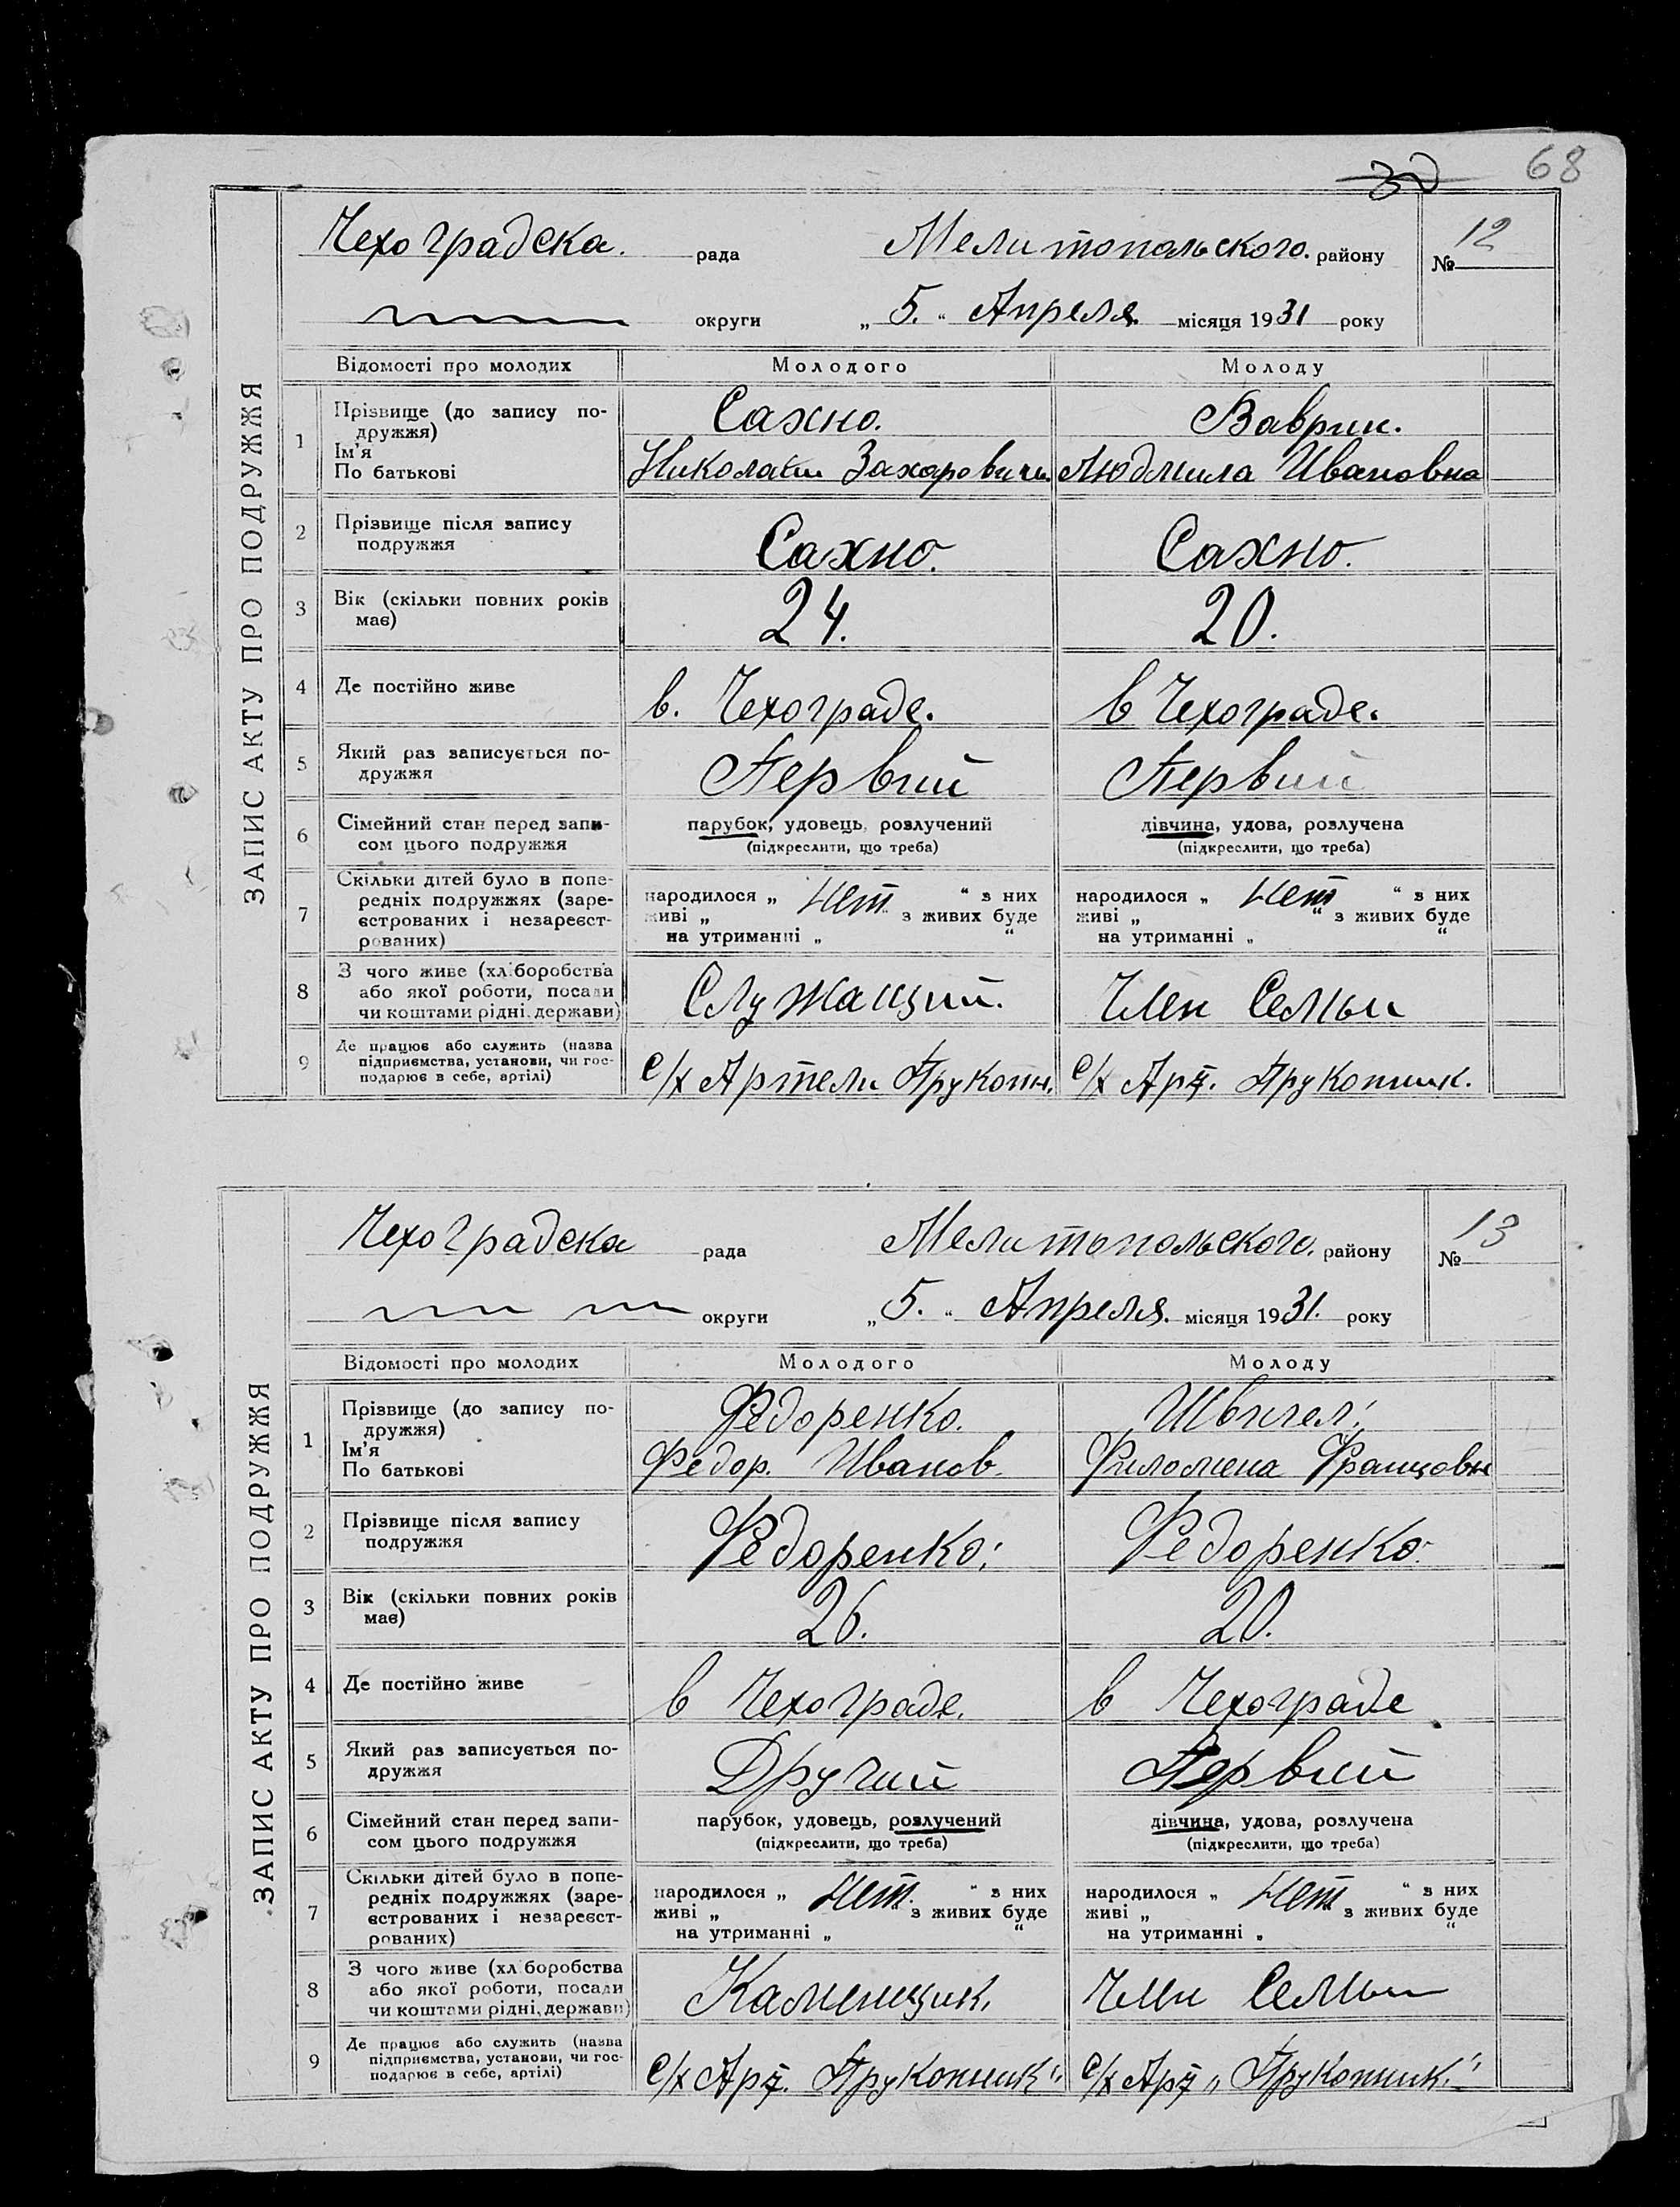 68
30
ЗАПИС АКТУ ПРО ПОДРУЖЖЯ
Чехоградска. рада Мелитопольского. району № 12
округи „ 5. “ Апреля. місяця 1931 року
Відомості про молодих Молодого Молоду
1 Прізвище (до запису по- Сахно. Ваврик.
дружжя)
Ім'я
По батькові Николай Захарович. Людмила Ивановна
2 Прізвище після запису
подружжя Сахно. Сахно.
3 Вік (скільки повних років
має) 24. 20.
4 Де постійно живе в. Чехограде. в Чехограде.
5 Який раз записується по-
дружжя Первий Первий
6 Сімейний стан перед запи- парубок, удовець, розлучений дівчина, удова, розлучена
сом цього подружжя (підкреслити, що треба) (підкреслити, що треба)
7 Скільки дітей було в попе-
редніх подружжях (заре- народилося „ Нет “ з них народилося „ Нет “ з них
єстрованих і незареєст- живі „ “ з живих буде живі „ “ з живих буде
рованих) на утриманні „ “ на утриманні „ “
8 З чого живе (хліборобства
або якої роботи, посади Служащий. Член Семьи
чи коштами рідні, держави)
9 Де працює або служить (назва
підприємства, установи, чи гос- с/х Артели Прукопн. с/х Арт. Прукопник.
подарює в себе, артілі)
ЗАПИС АКТУ ПРО ПОДРУЖЖЯ
Чехоградска рада Мелитопольского. району № 13
округи „ 5. “ Апреля. місяця 1931. року
Відомості про молодих Молодого Молоду
1 Прізвище (до запису по- Федоренко.
дружжя)
Ім'я
По батькові Федор. Иванов. Филомена Францовн
2 Прізвище після запису
подружжя Федоренко. Федоренко.
3 Вік (скільки повних років
має) 26. 20.
4 Де постійно живе в Чехограде. в Чехограде
5 Який раз записується по-
дружжя Другий Первий
6 Сімейний стан перед запи- парубок, удовець, розлучений дівчина, удова, розлучена
сом цього подружжя (підкреслити, що треба) (підкреслити, що треба)
7 Скільки дітей було в попе-
редніх подружжях (заре- народилося „ Нет. “ з них народилося „ Нет “ з них
єстрованих і незареєст- живі „ з живих буде живі „ з живих буде
рованих) на утриманні „ “ на утриманні „ “
8 З чого живе (хліборобства
або якої роботи, посади Каменщик. Член Семьи
чи коштами рідні, держави)
9 Де працює або служить (назва
підприємства, установи, чи гос- с/х Арт. Прукопник" с/х Арт „Прукопник"
подарює в себе, артілі)